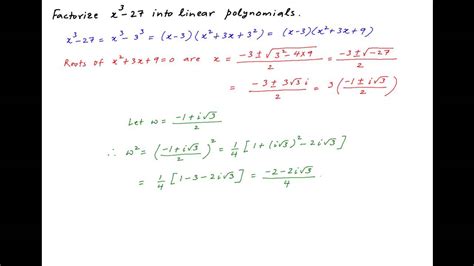 Factorize x³-27 into linear polynomials.
x³-27 = x³-3³ = (x-3)(x²+3x+3²) = (x-3)(x²+3x+9)
Roots of x²+3x+9=0 are x = (-3±√(3²-4×9))/2 = (-3±√-27)/2
= (-3±3√3 i)/2 = 3((-1±i√3)/2)
Let w = (-1+i√3)/2
∴ w² = ((-1+i√3)/2)² = 1/4 [1+(i√3)²-2i√3]
= 1/4 [1-3-2i√3] = (-2-2i√3)/4